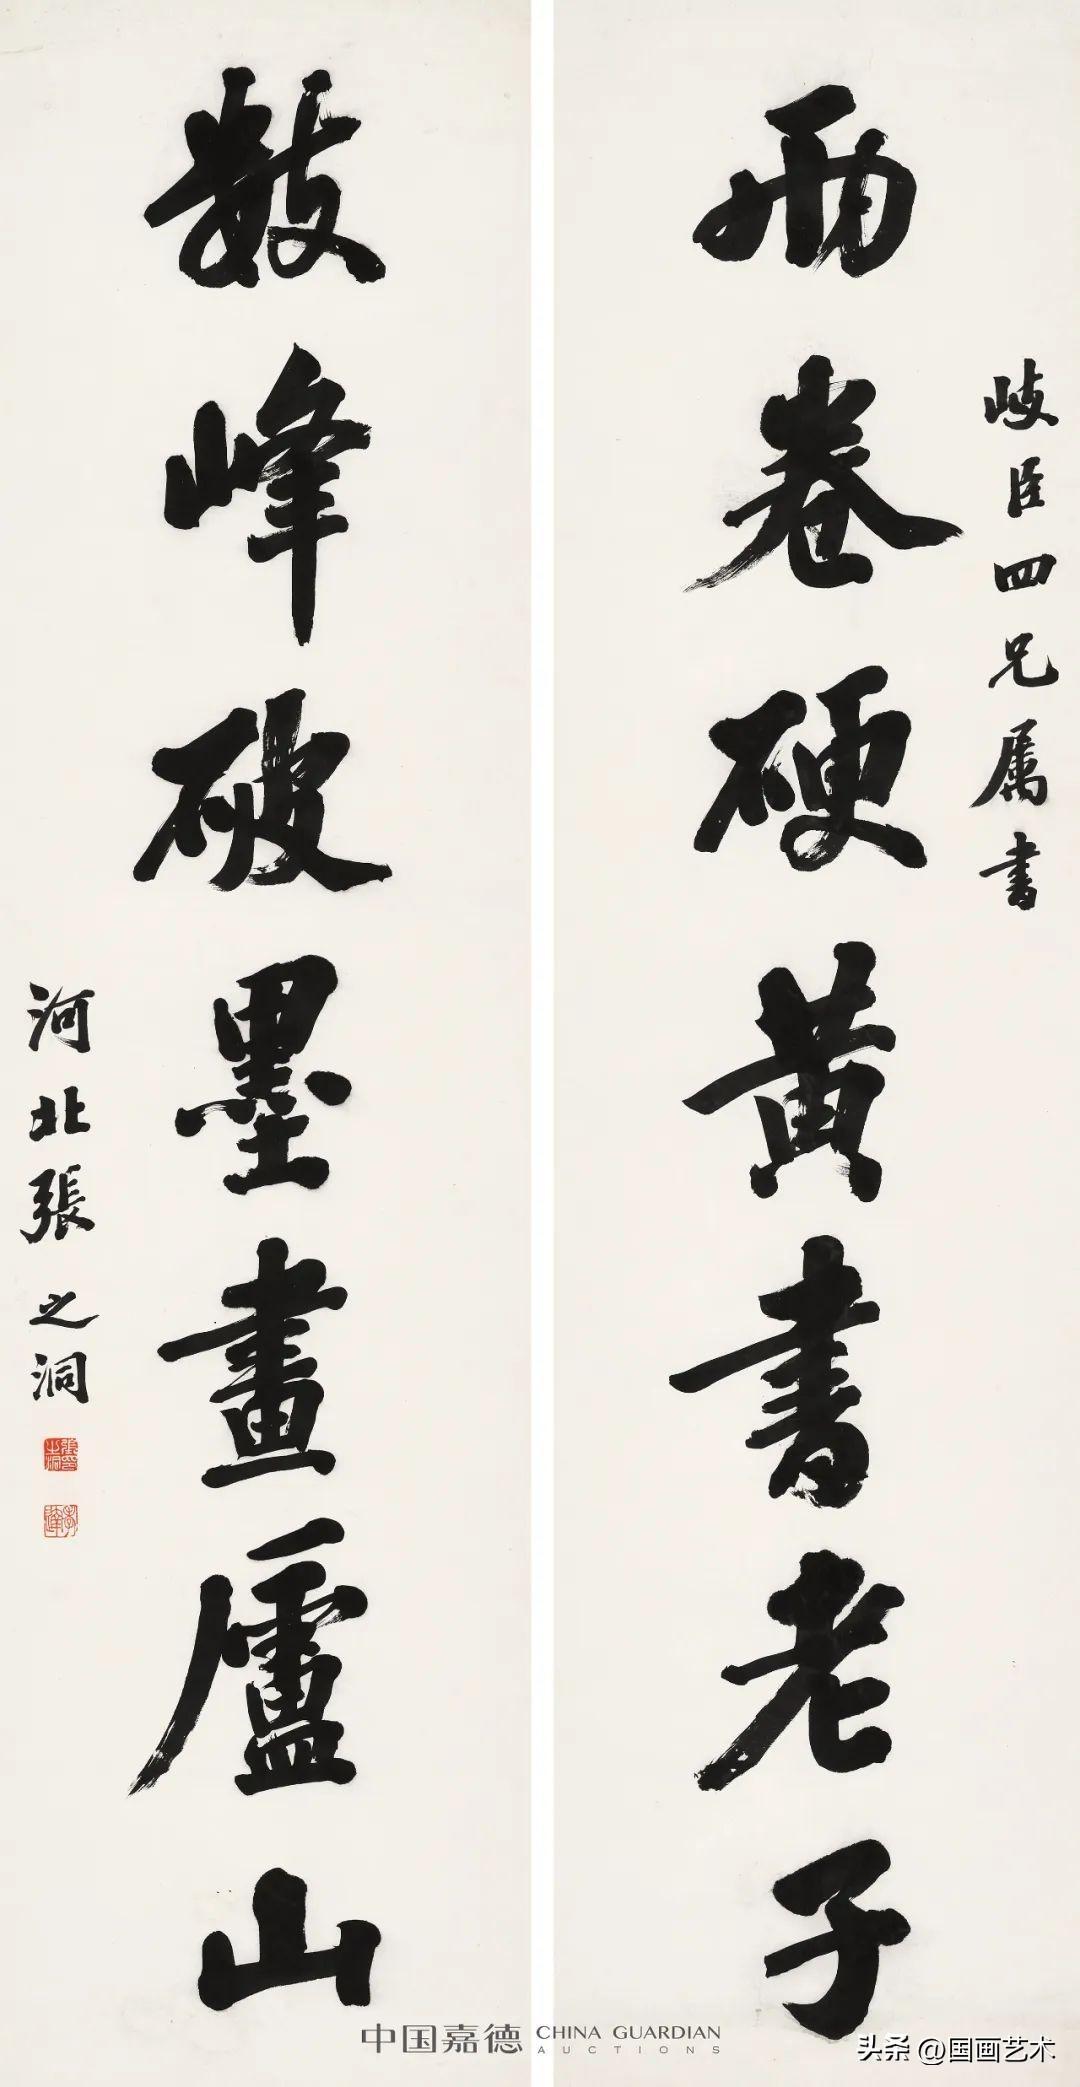 兩卷硬黃書老子
岐臣四兄属書
數峰破墨畫廬山
河北張之洞
張之洞印
孝達
中国嘉德 CHINA GUARDIAN
AUCTIONS
头条 @国画艺术